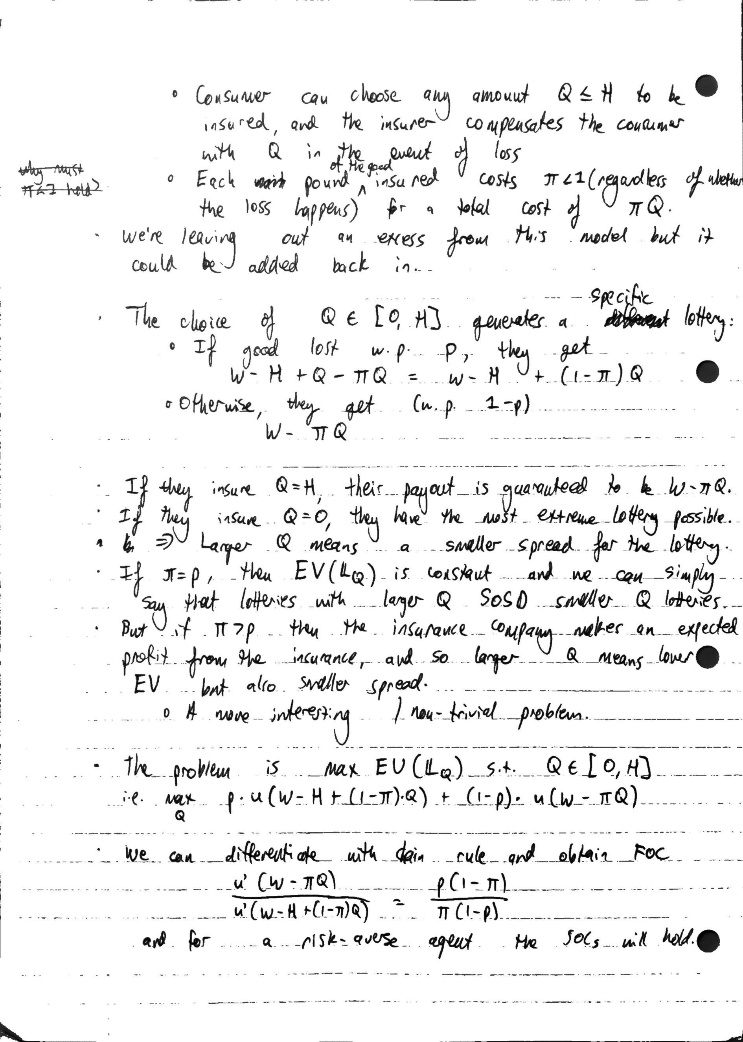 ◦ Consumer can choose any amount Q ≤ H to be
insured, and the insurer compensates the consumer
with Q in the event of loss
why must
π<1 hold?
of the good
◦ Each pound insured costs π<1 (regardless of whether
the loss happens) for a total cost of πQ.
· We're leaving out an excess from this model but it
could be added back in...
specific
· The choice of Q ∈ [0, H] generates a different lottery:
◦ If good lost w.p. p, they get
W - H + Q - πQ = W - H + (1-π)Q
◦ Otherwise, they get (w.p. 1-p)
W - πQ
· If they insure Q=H, their payout is guaranteed to be W-πQ.
· If they insure Q=0, they have the most extreme lottery possible.
· ⇒ Larger Q means a smaller spread for the lottery.
· If π=p, then EV(𝕃_Q) is constant and we can simply
say that lotteries with larger Q SOSD smaller Q lotteries.
· But if π>p then the insurance company makes an expected
profit from the insurance, and so larger Q means lower
EV but also smaller spread.
◦ A more interesting / non-trivial problem.
· The problem is max EU(𝕃_Q) s.t. Q ∈ [0, H]
i.e. max_Q p·u(W-H+(1-π)·Q) + (1-p)·u(W-πQ)
· We can differentiate with chain rule and obtain FOC
u'(W-πQ) / u'(W-H+(1-π)Q) = p(1-π) / π(1-p)
and for a risk-averse agent the SOCs will hold.